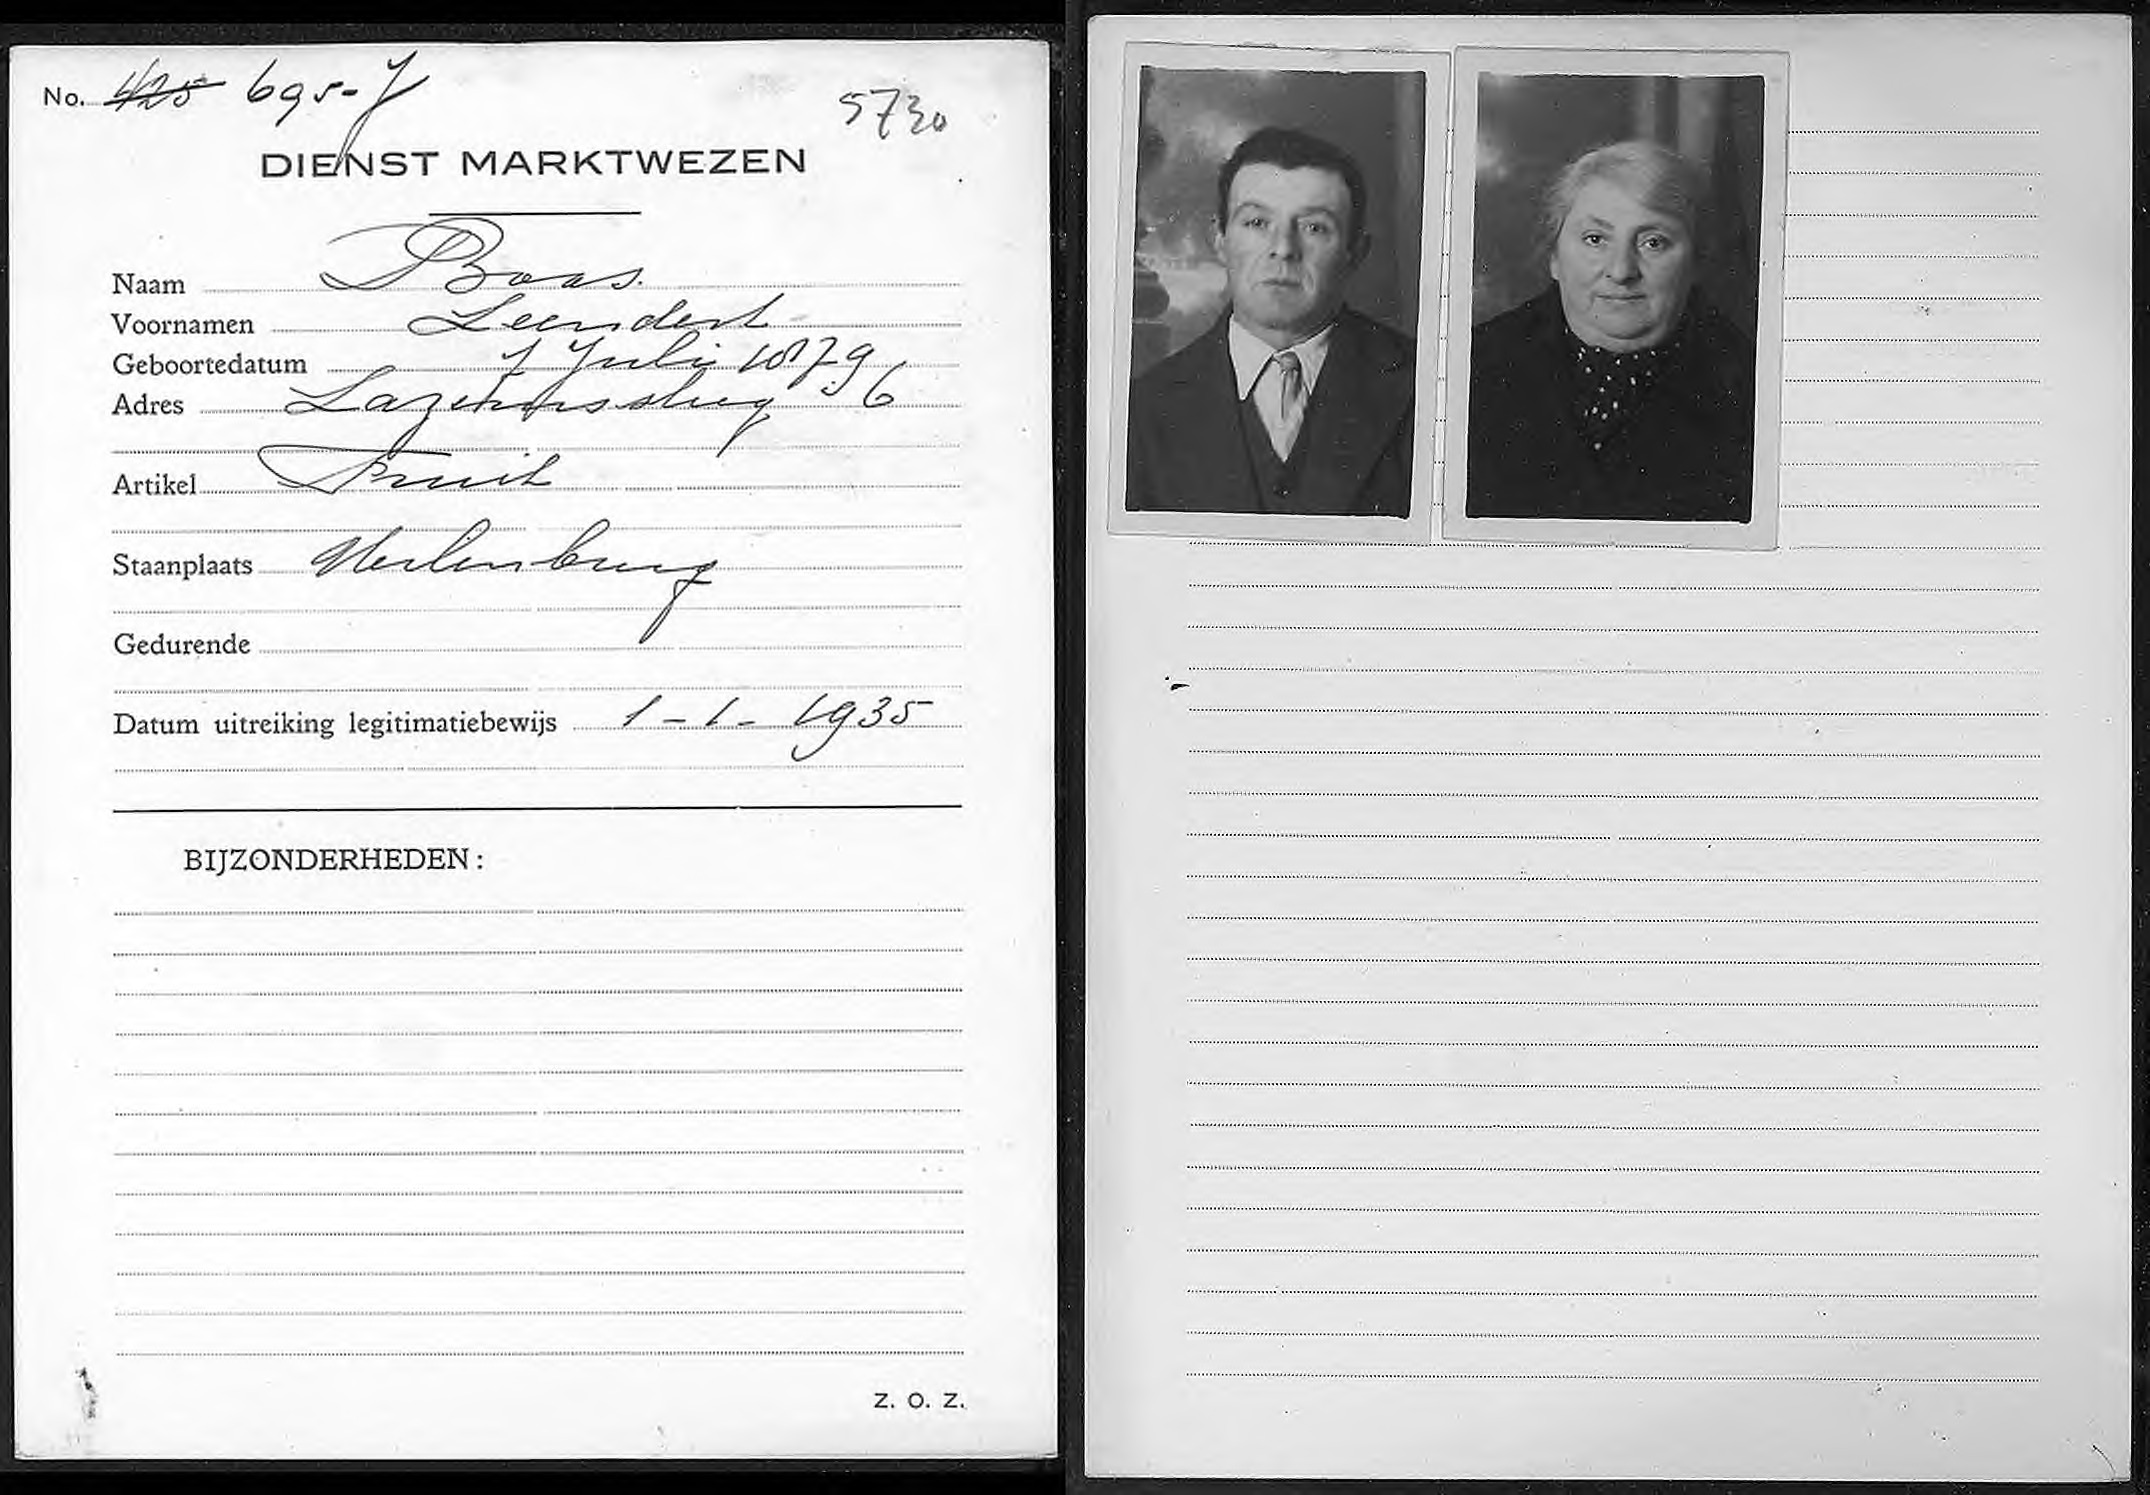 No. 425 695-J
5730
DIENST MARKTWEZEN
Naam Boas.
Voornamen Leendert
Geboortedatum 1 Juli 1879
Adres Lazarussteeg 6
Artikel Fruit
Staanplaats Uilenburg
Gedurende
Datum uitreiking legitimatiebewijs 1-1-1935
BIJZONDERHEDEN:
Z. O. Z.